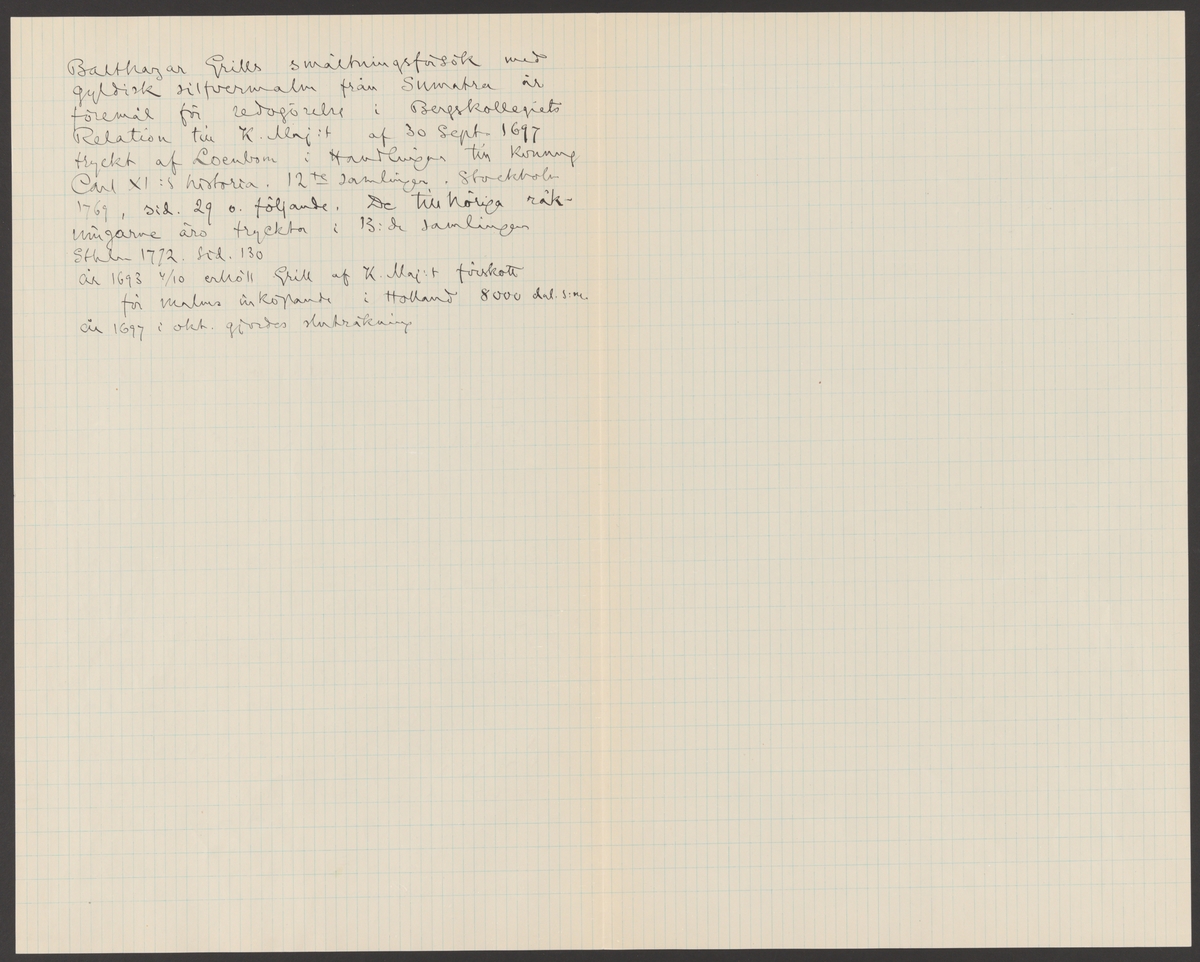 Balthazar Grills smältningsförsök med
gyldisk silfvermalm från Sumatra är
föremål för redogörelse i Bergskollegiets
Relation till K. Maj:t af 30 Sept. 1697
tryckt af Loenbom i Handlingar till Konung
Carl XI:s historia. 12te samlingen. Stockholm
1769, sid. 29 o. följande. De tillhöriga räk-
ningarne äro tryckta i 13:de samlingen
Sthlm 1772. Sid. 130
År 1693 4/10 erhöll Grill af K. Maj:t förskott
för malms inköpande i Holland 8000 dal. s:mt
År 1697 i okt. gjordes sluträkning